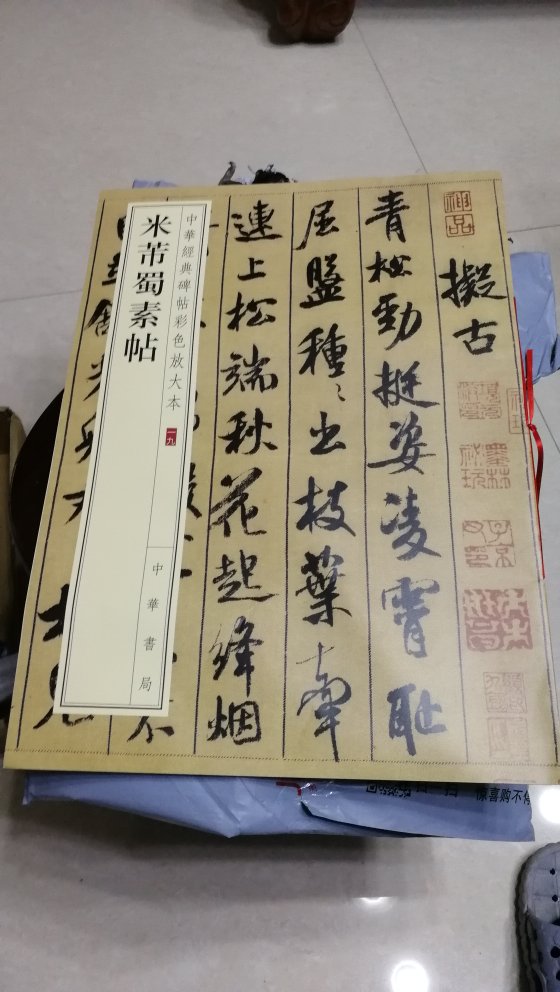 神品
擬古
青松勁挺姿凌霄耻
屈盤種〻出枝葉牽
連上松端秋花起絳烟
中華經典碑帖彩色放大本
一九
米芾蜀素帖
中華書局
惊喜购不停